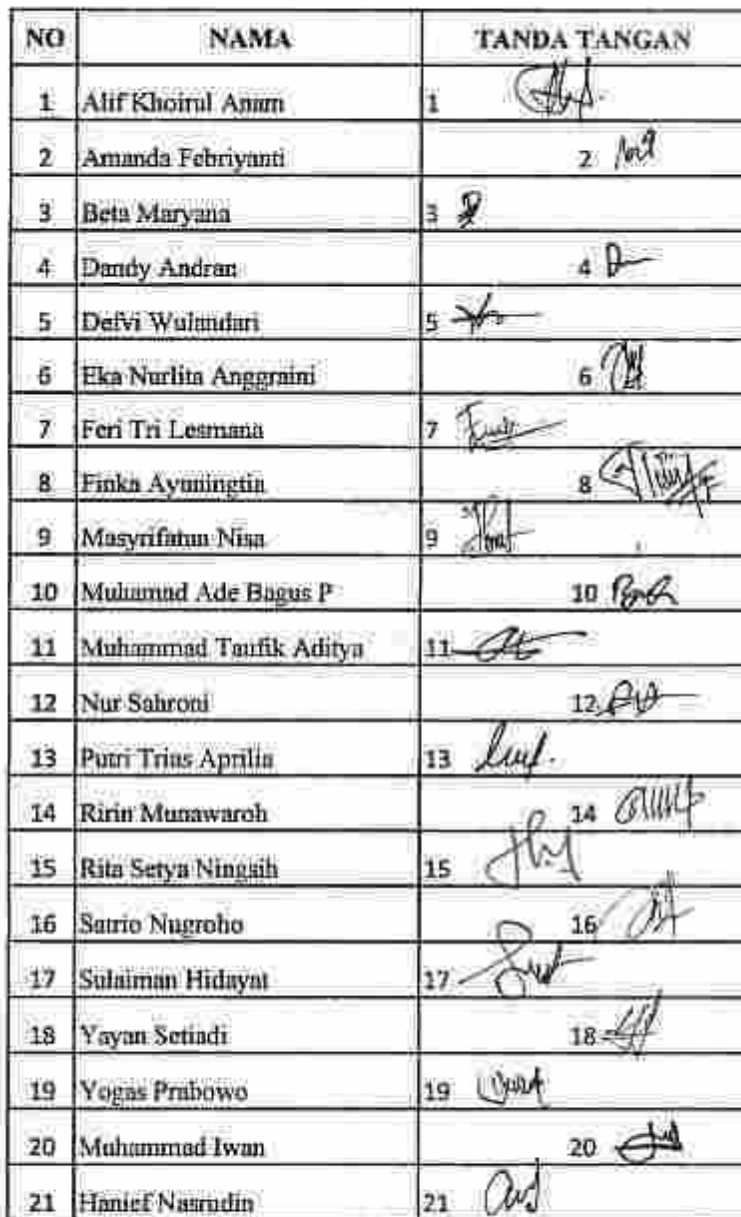 NO NAMA TANDA TANGAN
1 Alif Khoirul Anam 1
2 Amanda Febriyanti 2
3 Beta Maryana 3
4 Dandy Andran 4
5 Defvi Wulandari 5
6 Eka Nurlita Anggraini 6
7 Feri Tri Lesmana 7
8 Finka Ayuningtia 8
9 Masyrifatun Nisa 9
10 Muhamad Ade Bagus P 10
11 Muhammad Taufik Aditya 11
12 Nur Sahroni 12
13 Putri Trias Aprilia 13
14 Ririn Munawaroh 14
15 Rita Setya Ningsih 15
16 Satrio Nugroho 16
17 Sulaiman Hidayat 17
18 Yayan Setiadi 18
19 Yogas Prabowo 19
20 Muhammad Iwan 20
21 Hanief Nasrudin 21